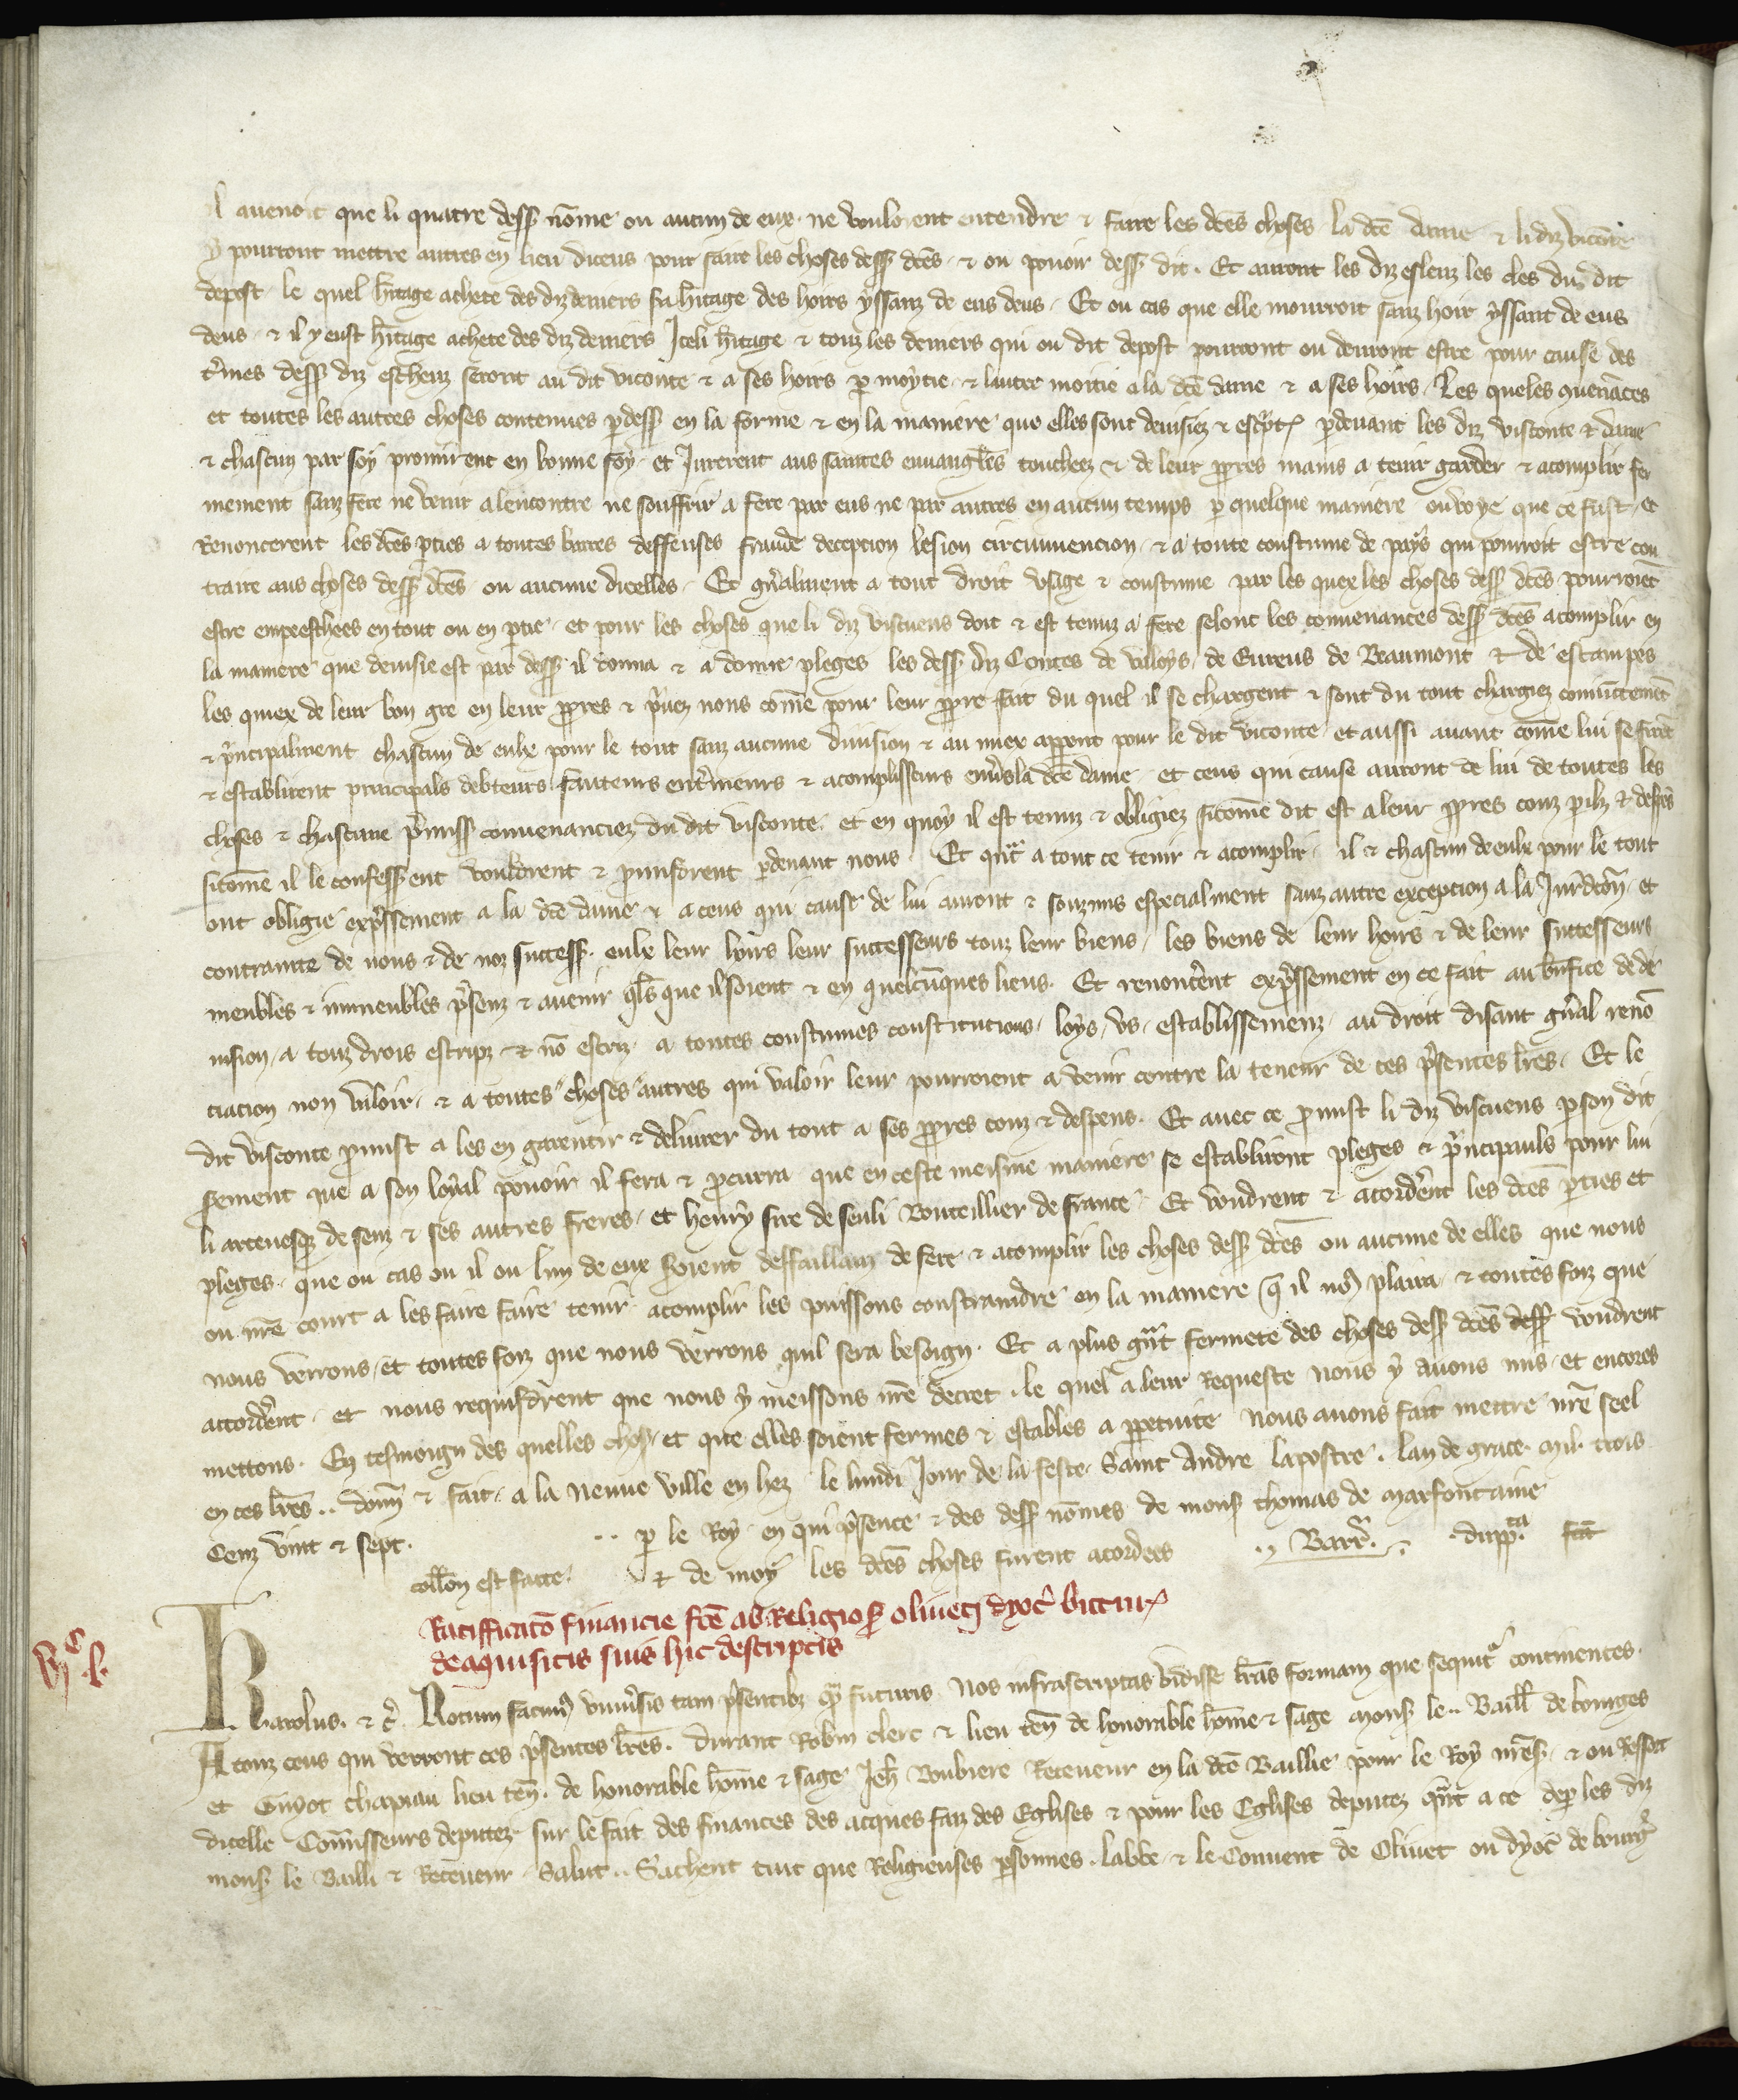 l avenoit que li quatre dess nōme ou aucun de eux ne vouloient entendre & faire les dc̄es choses la dc̄e dame & li diz viconte
y pourront mettre autres en lieu diceus pour faire les choses dess dc̄es & ou povoir dess dit. Et auront les diz esleuz les cles du dit
depost le quel h̄itage achete des diz deniers sil h̄itage des hoirs yssanz de eus deus. Et ou cas que elle mourroit sanz hoir yssant de eus
deus & il y eust h̄itage achete des diz deniers Iceli h̄itage & touz les deniers qui ou dit depost pourront ou devront estre pour cause des
t̄mes dess diz escheuz seront au dit viconte & a ses hoirs p moytie & lautre moitie a la dc̄e dame & a ses hoirs. Les queles 9venāces
et toutes les autres choses contenues p dess en la forme & en la maniere que elles sont devisiez & escptes pdevant les diz visconte & dame
& chascun par soy promirent en bonne foy et Jurerent aus saintes euvangiles touchees & de leur ppres mains a tenir garder & acomplir fer
mement sanz fere ne venir alencontre ne souffrir a fere par eus ne par autres en aucun temps p quelque maniere ou voye que ce fust. Et
Renoncerent les dc̄es pties a toutes barres deffenses fraude decepcion lesion circunvencion & a toute coustume de pays qui pourroit estre con
traire aus choses dess dc̄es ou aucune dicelles. Et gn̄alment a tout droit usage & coustume par les quex les choses dess dc̄es pourroiēt
estre empeeschees en tout ou en ptie. et pour les choses que li diz viscuens doit & est tenuz a fere selont les convenances dess dc̄es acomplir en
la maniere que devisie est par dess il donna & a donne pleges les dess diz Contes de Valoys, de Evreus de Beaumont & de estampes
les quiex de leur bon gre en leur ppres & pvez nons cōme pour leur ppre fait du quel il se chargent & sont du tout chargiez conjūctemēt
& pncipalment chascun de eulx pour le tout sanz aucune division & au miex apprent pour le dit viconte et aussi avant cōme lui se firēt
& establirent principals debteurs fauteurs ent̄ineurs & acomplisseurs env̄s la dc̄e dame et ceus qui cause auront de lui de toutes les
choses & chascune pmiss convenanciez du dit visconte et en quoy il est tenuz & obligiez sicōme dit est a leur ppres couz pilz & despēs
sicōme il le confessent vouldrent & promisdrent pdevant nous. Et quāt a tout ce tenir & acomplir il & chascun de eulx pour le tout
ont obligie expssement a la dc̄e dame & a ceus qui cause de lui auront & souzmis especialment sanz autre excepcion a la Jurdc̄on et
contrainte de nous & de noz success. eulx leur hoirs leur successeurs touz leur biens, les biens de leur hoirs & de leur successeurs
meubles & inmeubles psenz & avenir qls que il soient & en quelcūques lieus. Et renoncērent expssement en ce fait au bn̄fice de de
vision, a touz drois escripz & nō escriz a toutes coustumes constitucions, loys, us, establissemenz, au droit disant gn̄al renō
ciacion non valoir, & a toutes choses autres qui valoir leur pourroient a venir contre la teneur de ces psentes lr̄es. Et le
dit visconte pmist a les en garentir & delivrer du tout a ses ppres couz & despens. Et avec ce pmist li diz viscuens p son dit
serement que a son loyal povoir il fera & pcurra que en ceste meisme maniere se establiront pleges & pncipauls pour lui
li arcevesq̄ de senz & ses autres freres, et henry sire de seuli Bouteillier de france. Et voudrent & acordērent les dc̄es pties et
pleges que ou cas ou il ou lun de eux soient deffaillanz de fere & acomplir les choses dess dc̄es ou aucune de elles que nous
ou nr̄e court a les faire faire tenir acomplir les puissons constraindre en la maniere q̄ il no9 plaira & toutes foiz que
nous verrons, et toutes foiz que nous verrons quil sera besoign. Et a plus grāt fermete des choses dess dc̄es dess voudrent
accordērent, et nous requisdrent que nous y meissons nr̄e decret. le quel a leur requeste nous y avons mis. et encores
mettons. En tesmoign des quelles choses, et que elles soient fermes & estables a ppetuite nous avons fait mettre nr̄e seel
en ces lr̄es.. donn̄ & fait a la Neuve ville en hez le lundi Jour de la feste Saint Andre lapostre. lan de grace mil trois
Cenz vint & sept. .. p le Roy en qui psence & des dess nōmes de mons thomas de Marfontaine
coll̄on est facte. & de moy les dc̄es choses furent acordees .. Barr̄. duppta fcāt
Ratifficatō financie fc̄e ab Religios Oliveti dyoc̄ bittur
de aquisitis suis hic descriptis
vjc.l.
Karolus. & c̄. Notum facim9 univ̄sis tam psentibz q̄ futuris Nos infrascriptas vidisse lr̄as formam que sequit continentes.
A touz ceus qui verront ces psentes lr̄es. Durant Robin clerc & lieu ten̄ de honorable hōme & sage mons le.. Baill̄ de bourges
et Guiot chapiau lieu ten̄. de honorable hōme & sage Jeh̄ Boubiere Receveur en la dc̄e Baillie pour le Roy nr̄es. & ou ressort
dicelle Com̄isseurs deputez sur le fait des finances des acques faiz des Eglises & pour les Eglises deputez quāt a ce dep les diz
mons le Bailli & Receveur. Salut.. Sachent tuit que Religieuses psonnes. labbe & le Convent de Olivet ou dyoc̄ de bourḡ